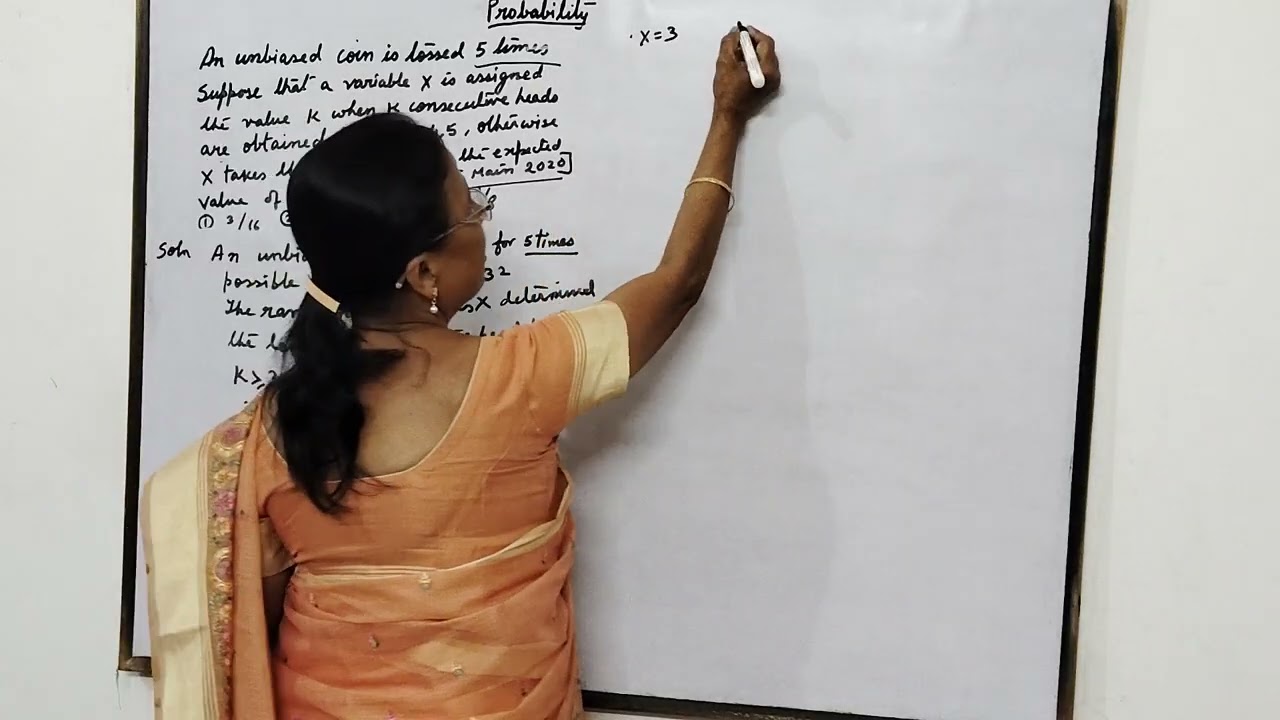 Probability
An unbiased coin is tossed 5 times
Suppose that a variable X is assigned
the value K when K consecutive heads
are obtained 4,5, otherwise
X takes the expected
value of Main 2020]
① 3/16
Soln An for 5 times
possible 32
The X determined
the
K ≥
· X=3